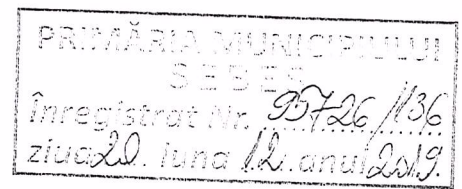 PRIMĂRIA MUNICIPIULUI
SEBEȘ
Înregistrat Nr. 95726/136
ziua 20. luna 12. anul 2019.